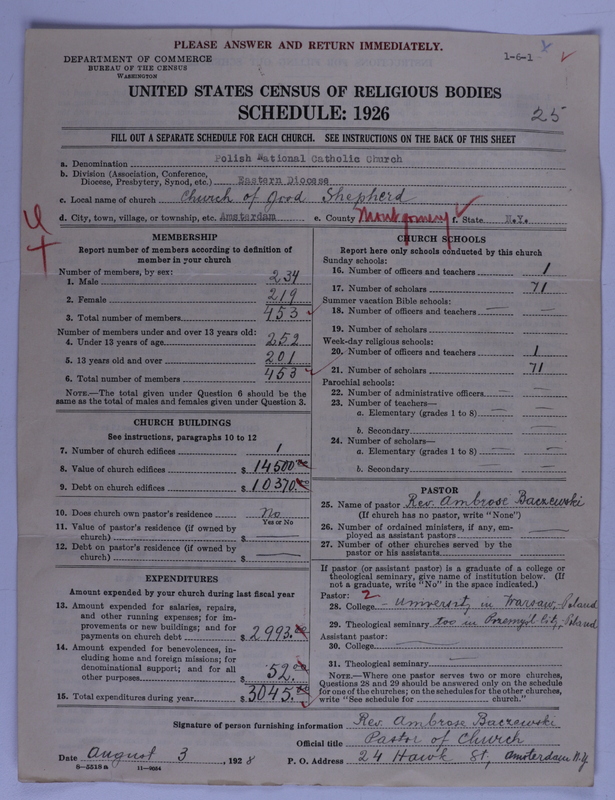 PLEASE ANSWER AND RETURN IMMEDIATELY.
1-6-1 x ✓
DEPARTMENT OF COMMERCE
BUREAU OF THE CENSUS
WASHINGTON
UNITED STATES CENSUS OF RELIGIOUS BODIES
SCHEDULE: 1926
25
FILL OUT A SEPARATE SCHEDULE FOR EACH CHURCH. SEE INSTRUCTIONS ON THE BACK OF THIS SHEET
a. Denomination Polish National Catholic Church
b. Division (Association, Conference,
Diocese, Presbytery, Synod, etc.) Eastern Diocese
c. Local name of church Church of Good Shepherd
d. City, town, village, or township, etc. Amsterdam e. County Montgomery ✓ f. State N.Y.
MEMBERSHIP
Report number of members according to definition of
member in your church
Number of members, by sex:
1. Male 234
2. Female 219
3. Total number of members 453 ✓
Number of members under and over 13 years old:
4. Under 13 years of age 252
5. 13 years old and over 201
6. Total number of members 453 ✓
NOTE.—The total given under Question 6 should be
same as the total of males and females given under Question 3.
CHURCH BUILDINGS
See instructions, paragraphs 10 to 12
7. Number of church edifices 1
8. Value of church edifices $ 14500.00
9. Debt on church edifices $ 10370.00
10. Does church own pastor's residence No
Yes or No
11. Value of pastor's residence (if owned by
church) $ —
12. Debt on pastor's residence (if owned by
church) $ —
EXPENDITURES
Amount expended by your church during last fiscal year
13. Amount expended for salaries, repairs,
and other running expenses; for im-
provements or new buildings; and for
payments on church debt $ 2993.00
14. Amount expended for benevolences, in-
cluding home and foreign missions; for
denominational support; and for all
other purposes $ 52.00
15. Total expenditures during year $ 3045.00 ✓
CHURCH SCHOOLS
Report here only schools conducted by this church
Sunday schools:
16. Number of officers and teachers 1
17. Number of scholars 71
Summer vacation Bible schools:
18. Number of officers and teachers —
19. Number of scholars —
Week-day religious schools:
20. Number of officers and teachers 1
21. Number of scholars 71
Parochial schools:
22. Number of administrative officers —
23. Number of teachers—
a. Elementary (grades 1 to 8) —
b. Secondary —
24. Number of scholars—
a. Elementary (grades 1 to 8) —
b. Secondary —
PASTOR
25. Name of pastor Rev. Ambrose Baczewski
(If church has no pastor, write "None")
26. Number of ordained ministers, if any, em-
ployed as assistant pastors —
27. Number of other churches served by the
pastor or his assistants —
If pastor (or assistant pastor) is a graduate of a college or
theological seminary, give name of institution below. (If
not a graduate, write "No" in the space indicated.)
Pastor: 2
28. College - University in Warsaw, Poland
29. Theological seminary too in Przemyśl City, Poland
Assistant pastor:
30. College —
31. Theological seminary —
NOTE.—Where one pastor serves two or more churches,
Questions 28 and 29 should be answered only on the schedule
for one of the churches; on the schedules for the other churches,
write "See schedule for church."
Signature of person furnishing information Rev. Ambrose Baczewski
Official title Pastor of Church
Date August 3, 1928 P. O. Address 24 Hawk St, Amsterdam N.Y
8-5518a 11-9004